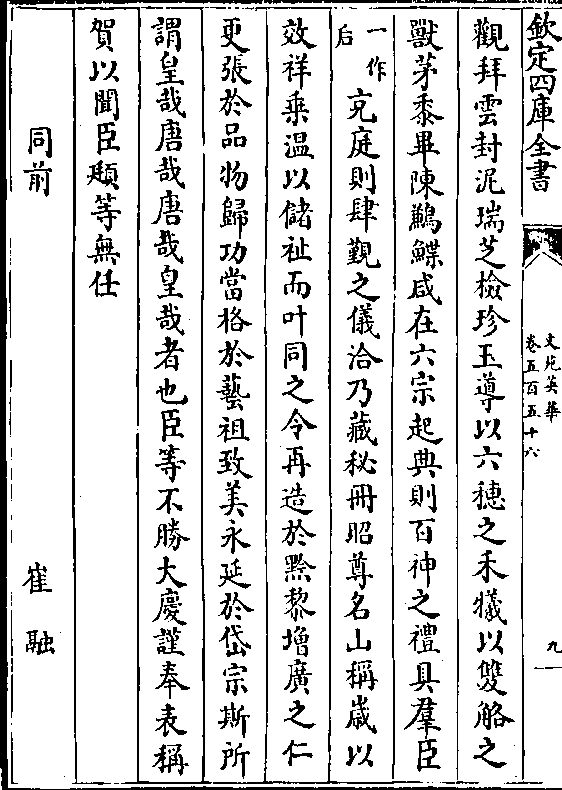 欽定四庫全書
文苑英華
卷五百五十六
九
觀拜雲封泥瑞芝檢珍玉導以六穗之禾犧以雙觡之
獸茅黍畢陳鷀鰈咸在六宗起典則百神之禮具羣臣
一作
后
充庭則肆覲之儀洽乃藏秘冊昭尊名山稱嵗以
效祥乗温以儲祉而叶同之令再造於黔黎增廣之仁
更張於品物歸功當格於藝祖致美永延於岱宗斯所
謂皇哉唐哉唐哉皇哉者也臣等不勝大慶謹奉表稱
賀以聞臣頲等無任
同前
崔融